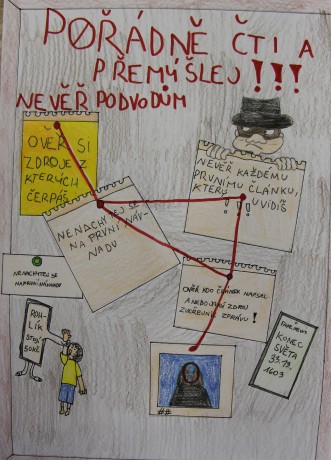 POŘÁDNĚ ČTI A
PŘEMÝŠLEJ!!!
NEVĚŘ PODVODŮM
OVĚŘ SI
ZDROJE Z
KTERÝCH
ČERPÁŠ
NEVĚŘ KAŽDÉMU
PRVNÍMU ČLÁNKU,
KTERÝ UVIDÍŠ
!!
NENACHYTEJ SE
NA PRVNÍ NÁV-
NADU
NENACHYTEJ SE
NA PRVNÍ NÁVNADU
OVĚŘ KDO ČLÁNEK NAPSAL
A NEBO JINÝ ZDROJ
ZVEŘEJNIL ZPRÁVU!
ROH-
LÍK
STOJÍ
KONEC
SVĚTA
33.13.
1603
##